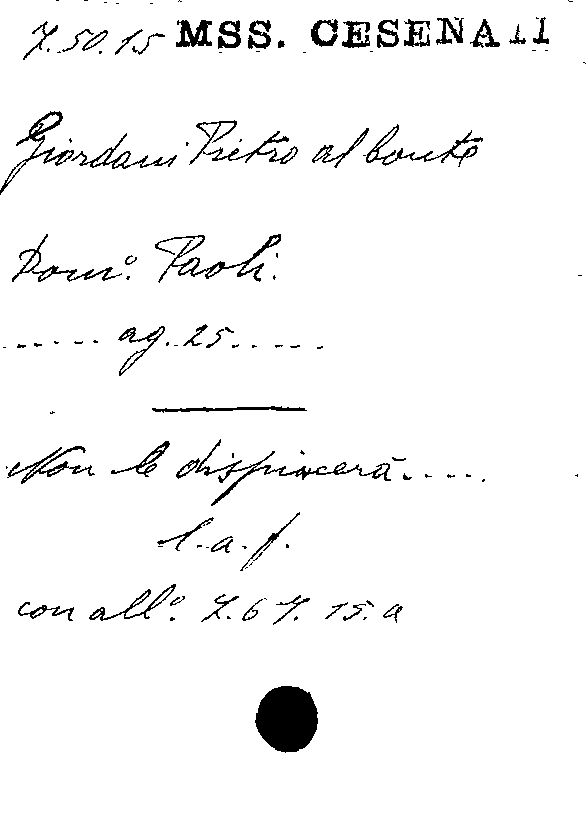 Z.50.15 MSS. CESENATI
Giordani Pietro al Conte
Dom.º Paoli.
...... ag. 25.....
Non le dispiacerà.....
l. a. f.
con all.º Z. 67. 15. a